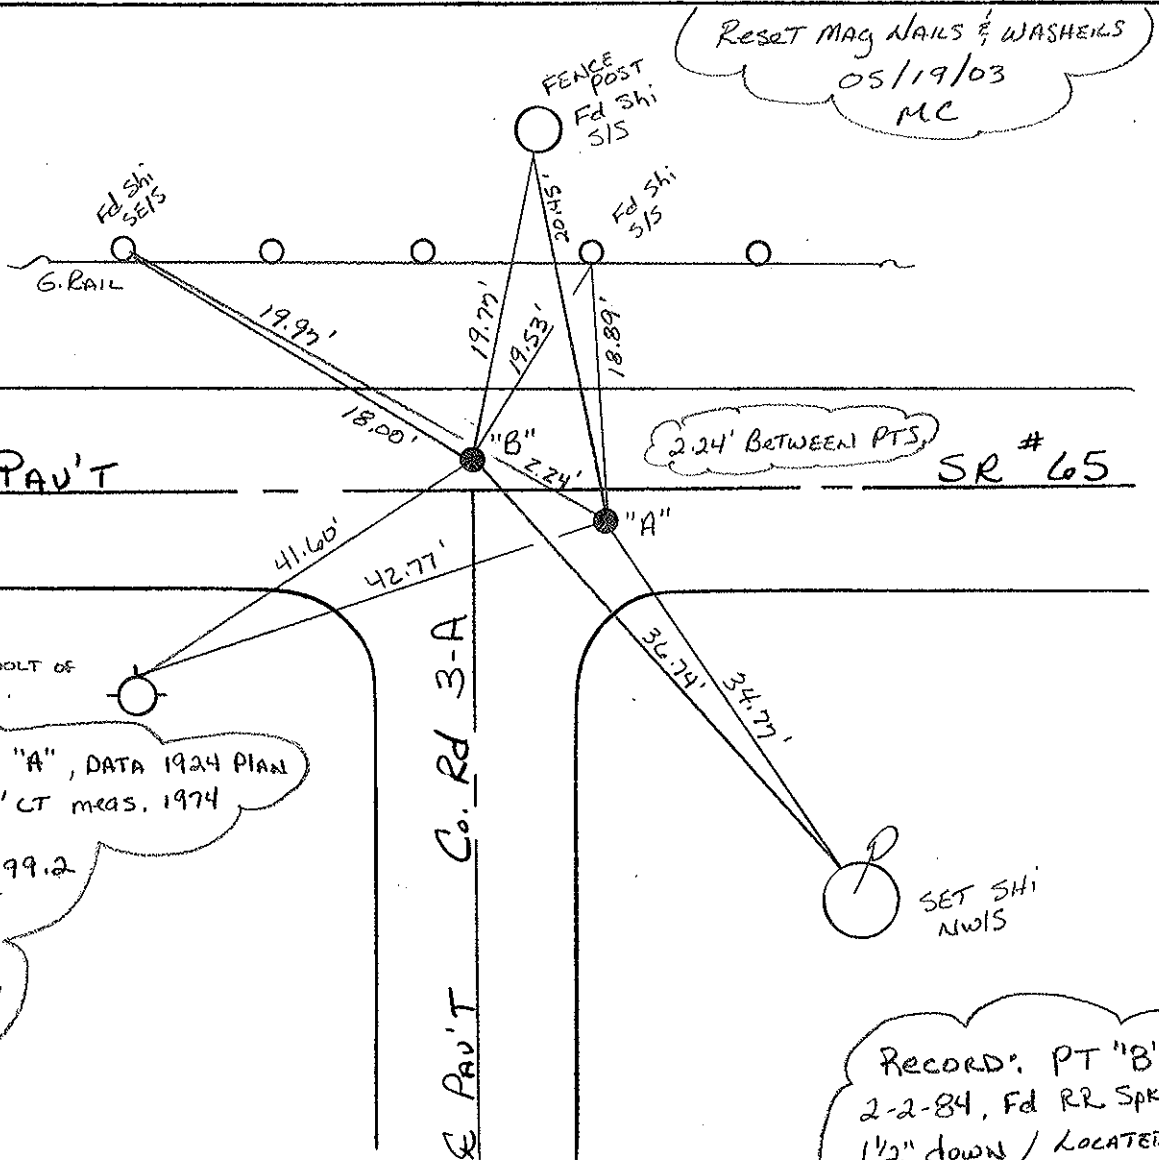 Reset Mag Nails & Washers
05/19/03
MC
FENCE
POST
Fd Shi
S/S
Fd Shi
SE/S
Fd Shi
S/S
20.45'
G.RAIL
19.97'
19.77'
19.53'
18.89'
18.00'
"B"
2.24'
2.24' BETWEEN PTS.
PAV'T
SR #65
"A"
41.60'
42.77'
36.74'
34.77'
OLT OF
"A", DATA 1924 PLAN
' CT meas. 1974
99.2
Co. Rd 3-A
℄ PAV'T
P
SET SHi
NW/S
RECORD: PT "B"
2-2-84, Fd RR Spk
1 1/2" down / LOCATED